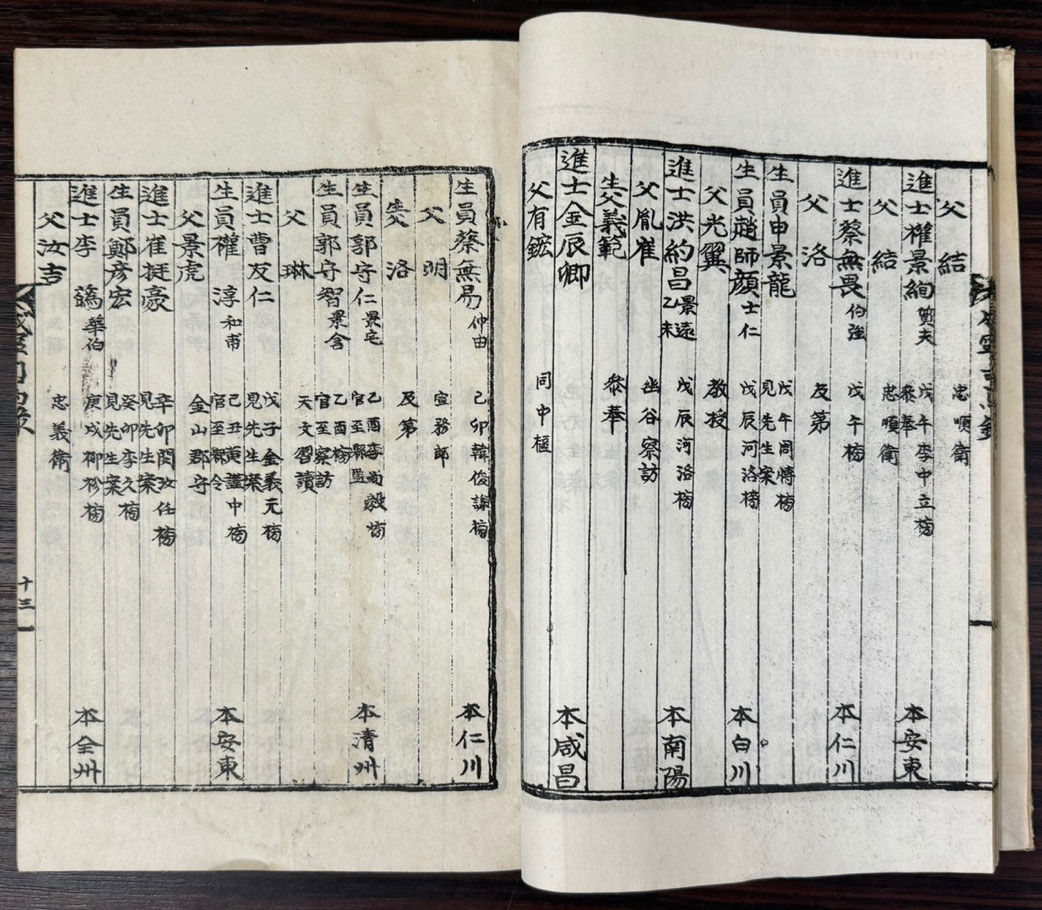 父 結 忠順衛
進士權景絢 質夫 戊午李中立榜 叅奉 本安東
父 結 忠順衛
進士蔡無畏 伯強 戊午榜 本仁川
父 洛 及第
生員申景龍 戊午周愽榜 見先生案
生員趙師顔 士仁 戊辰河洛榜 本白川
父光翼 教授
進士洪約昌 景遠 乙未 戊辰河洛榜 本南陽
父胤崔 幽谷察訪
生父義範 叅奉
進士金辰卿 本咸昌
父有鋐 同中樞
生員蔡無易 仲由 己卯韓俊謙榜 本仁川
父 明 宣務郎
生父 洛 及第
生員郭守仁 景宅 乙酉李尚毅榜 官至縣監 本清州
生員郭守智 景含 乙酉榜 官至察訪
父 琳 天文習讀
進士曹友仁 戊子金義元榜 見先生案
生員權 淳 和甫 己丑黃謹中榜 官至縣令 本安東
父景虎 金山郡守
進士崔挺豪 辛卯閔汝任榜 見先生案
生員鄭彦宏 癸卯李久榜 見先生案
進士李 䥴 華伯 庚戌柳袗榜 本全州
父汝吉 忠義衛
十三